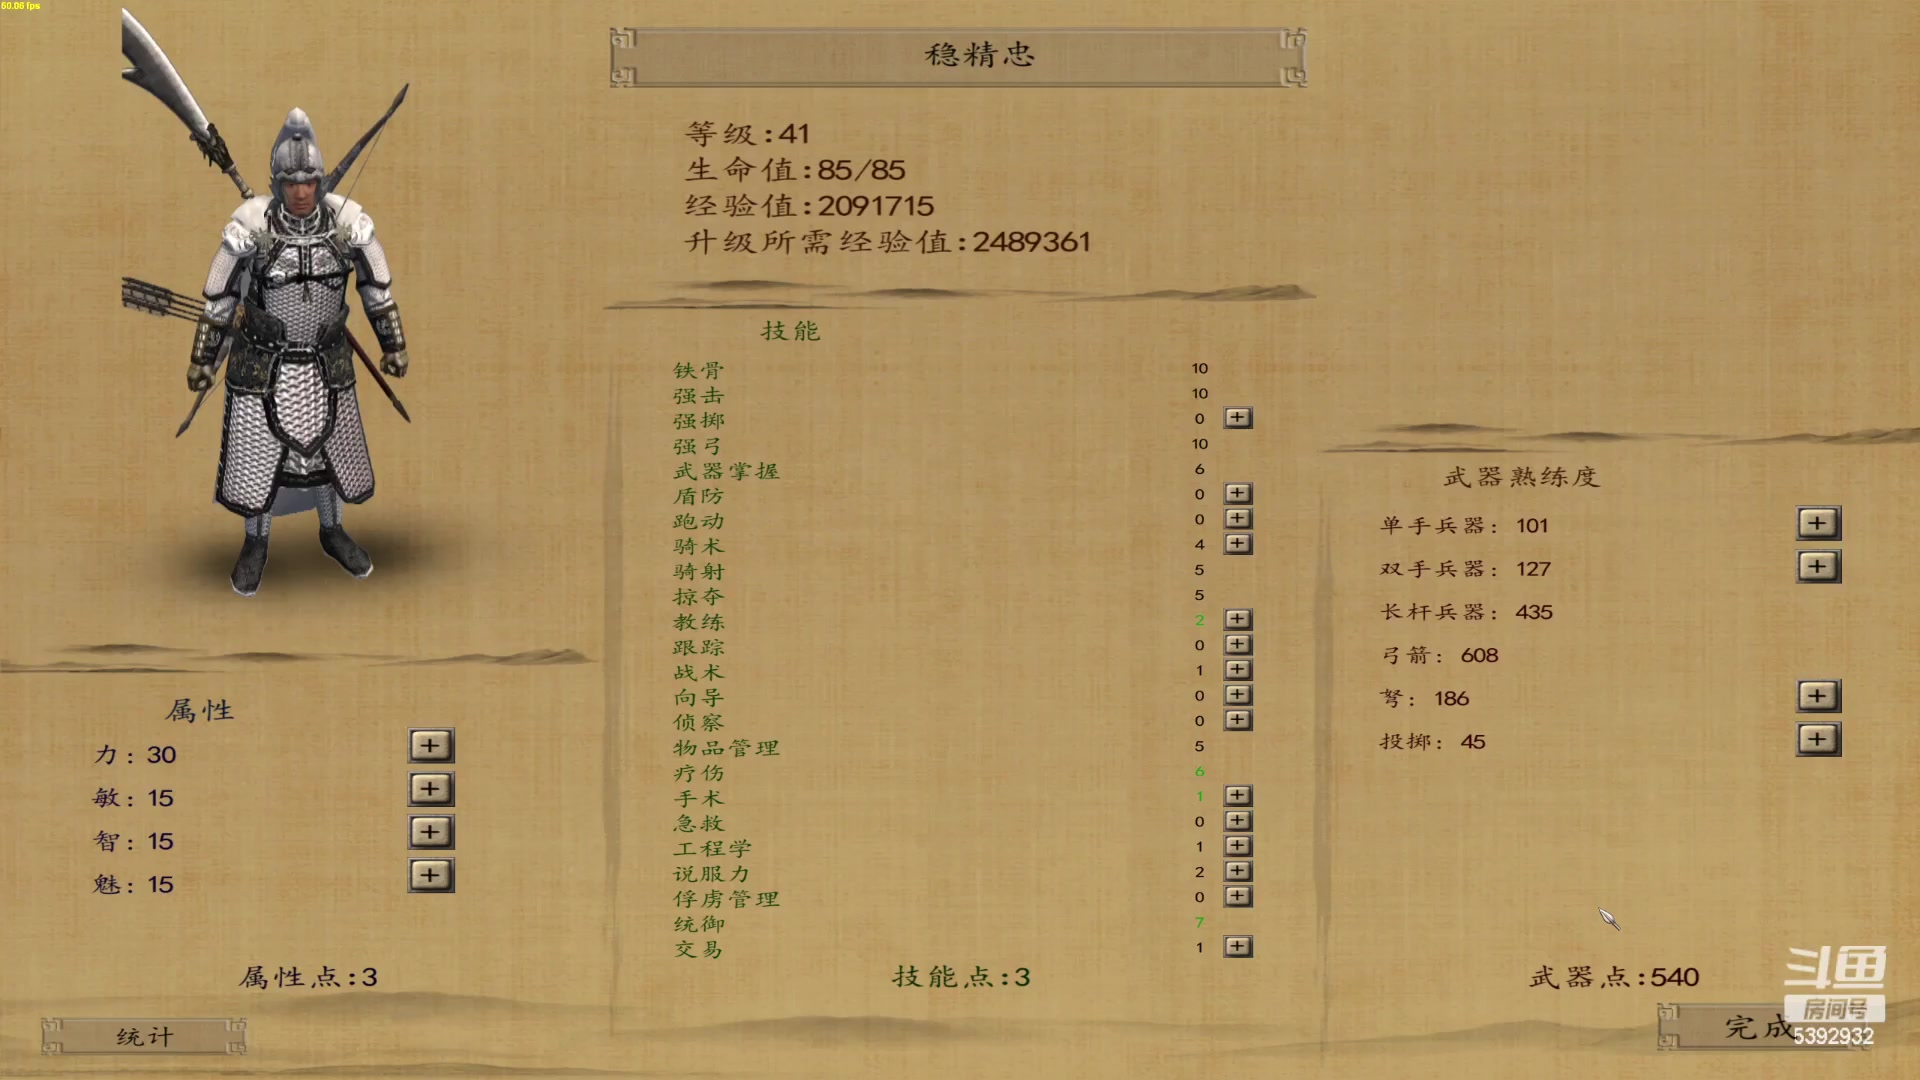 60.06 fps
稳精忠
等级:41
生命值:85/85
经验值:2091715
升级所需经验值:2489361
技能
铁骨 10
强击 10
强掷 0 +
强弓 10
武器掌握 6
盾防 0 +
跑动 0 +
骑术 4 +
骑射 5
掠夺 5
教练 2 +
跟踪 0 +
战术 1 +
向导 0 +
侦察 0 +
物品管理 5
疗伤 6
手术 1 +
急救 0 +
工程学 1 +
说服力 2 +
俘虏管理 0 +
统御 7
交易 1 +
技能点:3
属性
力: 30 +
敏: 15 +
智: 15 +
魅: 15 +
属性点:3
统计
武器熟练度
单手兵器: 101 +
双手兵器: 127 +
长杆兵器: 435
弓箭: 608
弩: 186 +
投掷: 45 +
武器点:540
完成
斗鱼
房间号
5392932